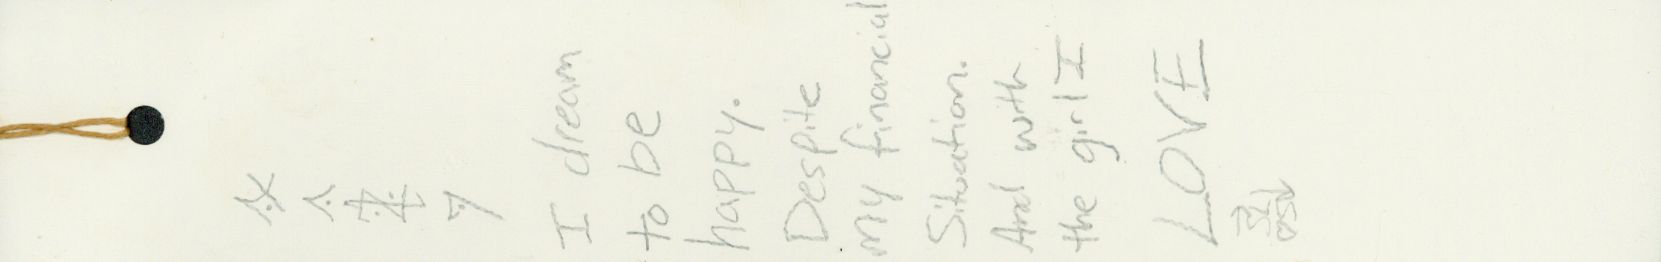 I dream
to be
happy.
Despite
my financial
Situation.
And with
the girl I
LOVE